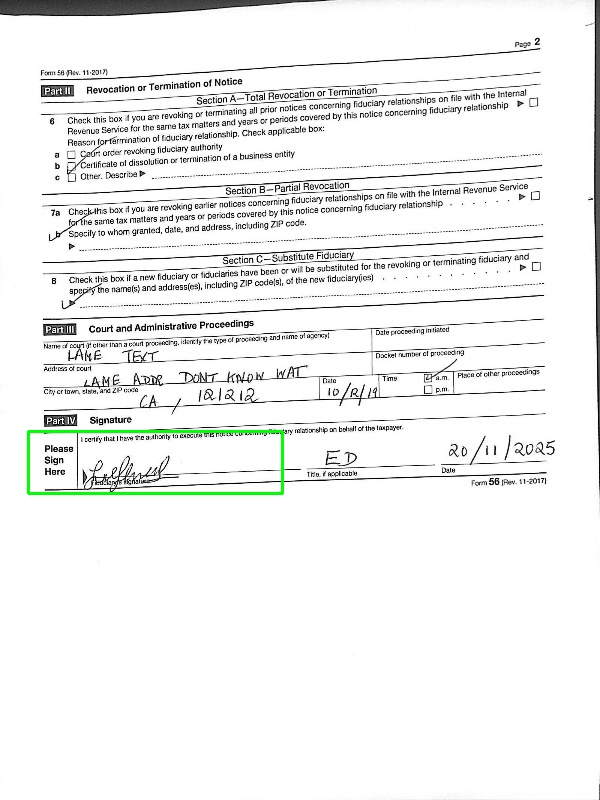 Page 2
Form 56 (Rev. 11-2017)
Part II Revocation or Termination of Notice
Section A—Total Revocation or Termination
6 Check this box if you are revoking or terminating all prior notices concerning fiduciary relationships on file with the Internal
Revenue Service for the same tax matters and years or periods covered by this notice concerning fiduciary relationship ▶ ☐
Reason for termination of fiduciary relationship. Check applicable box:
a ☐ Court order revoking fiduciary authority
b ☑ Certificate of dissolution or termination of a business entity
c ☐ Other. Describe ▶
Section B—Partial Revocation
7a Check this box if you are revoking earlier notices concerning fiduciary relationships on file with the Internal Revenue Service
for the same tax matters and years or periods covered by this notice concerning fiduciary relationship . . . . . . ▶ ☐
b Specify to whom granted, date, and address, including ZIP code.
▶
Section C—Substitute Fiduciary
8 Check this box if a new fiduciary or fiduciaries have been or will be substituted for the revoking or terminating fiduciary and
specify the name(s) and address(es), including ZIP code(s), of the new fiduciary(ies) . . . . . . . . . . . ▶ ☐
▶
Part III Court and Administrative Proceedings
Name of court (if other than a court proceeding, identify the type of proceeding and name of agency) Date proceeding initiated
LAME TEXT
Address of court Docket number of proceeding
LAME ADDR DONT KNOW WAT
City or town, state, and ZIP code Date Time ☑ a.m. Place of other proceedings
CA, 121212 10/2/19 ☐ p.m.
Part IV Signature
I certify that I have the authority to execute this notice concerning fiduciary relationship on behalf of the taxpayer.
Please
Sign
Here
ED 20/11/2025
Fiduciary's signature Title, if applicable Date
Form 56 (Rev. 11-2017)